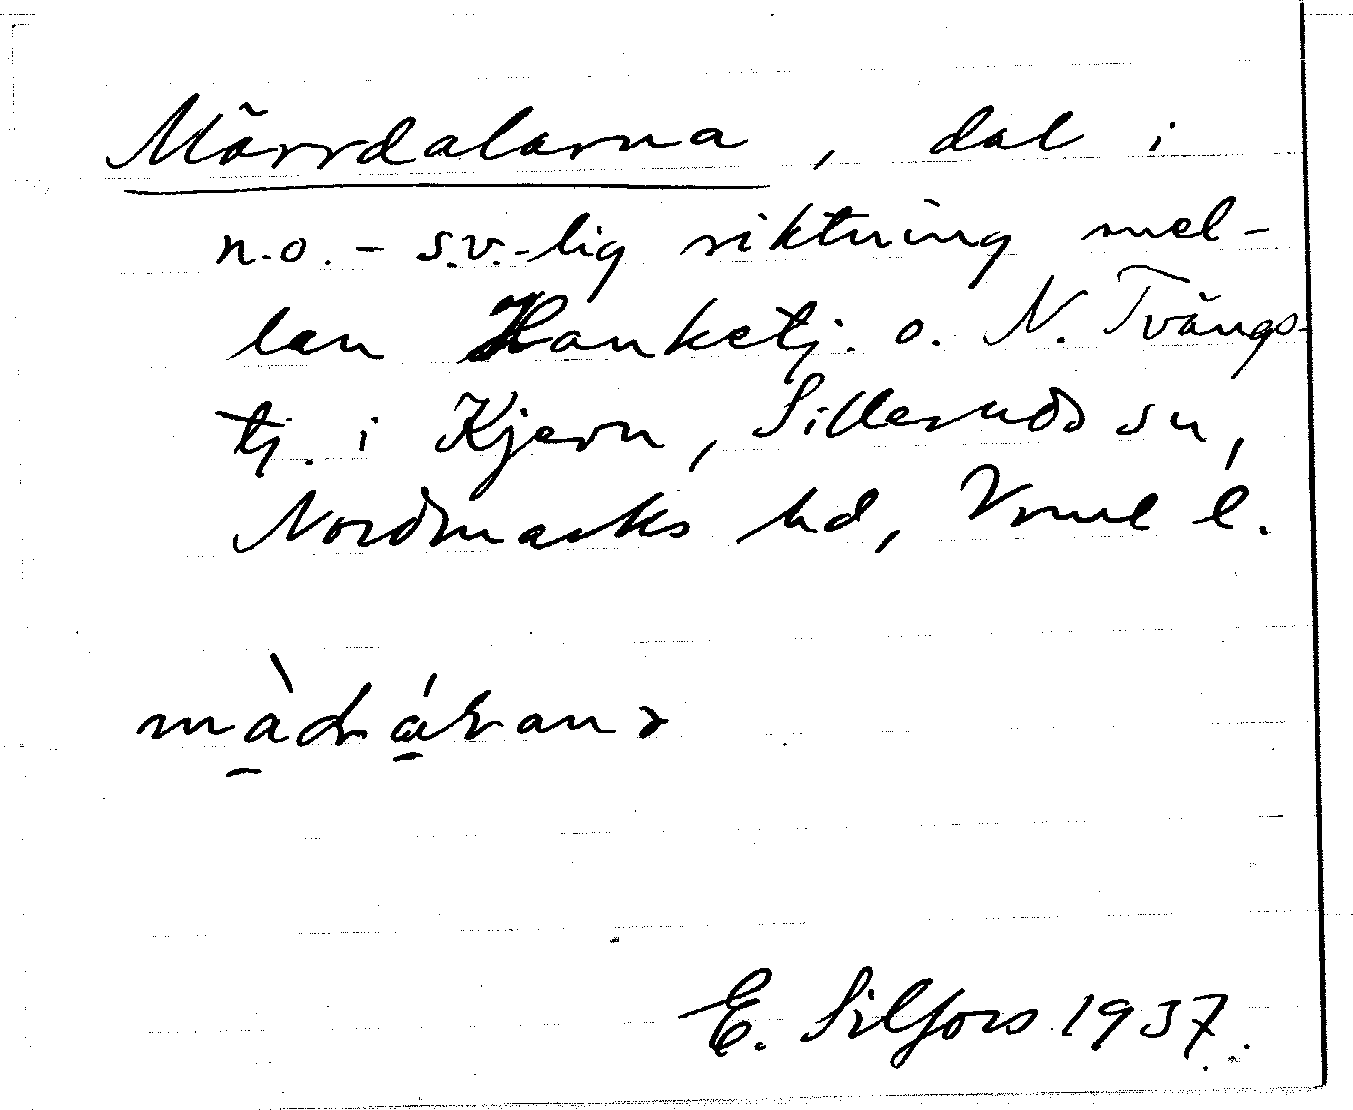 Mårrdalarna, dal i
n.o. - s.v.-lig riktning mel-
lan Hanketj. o. N. Tvångs-
tj. i Kjern, Silleruds sn,
Nordmarks hd, Vrml l.
E. Silfors 1937.